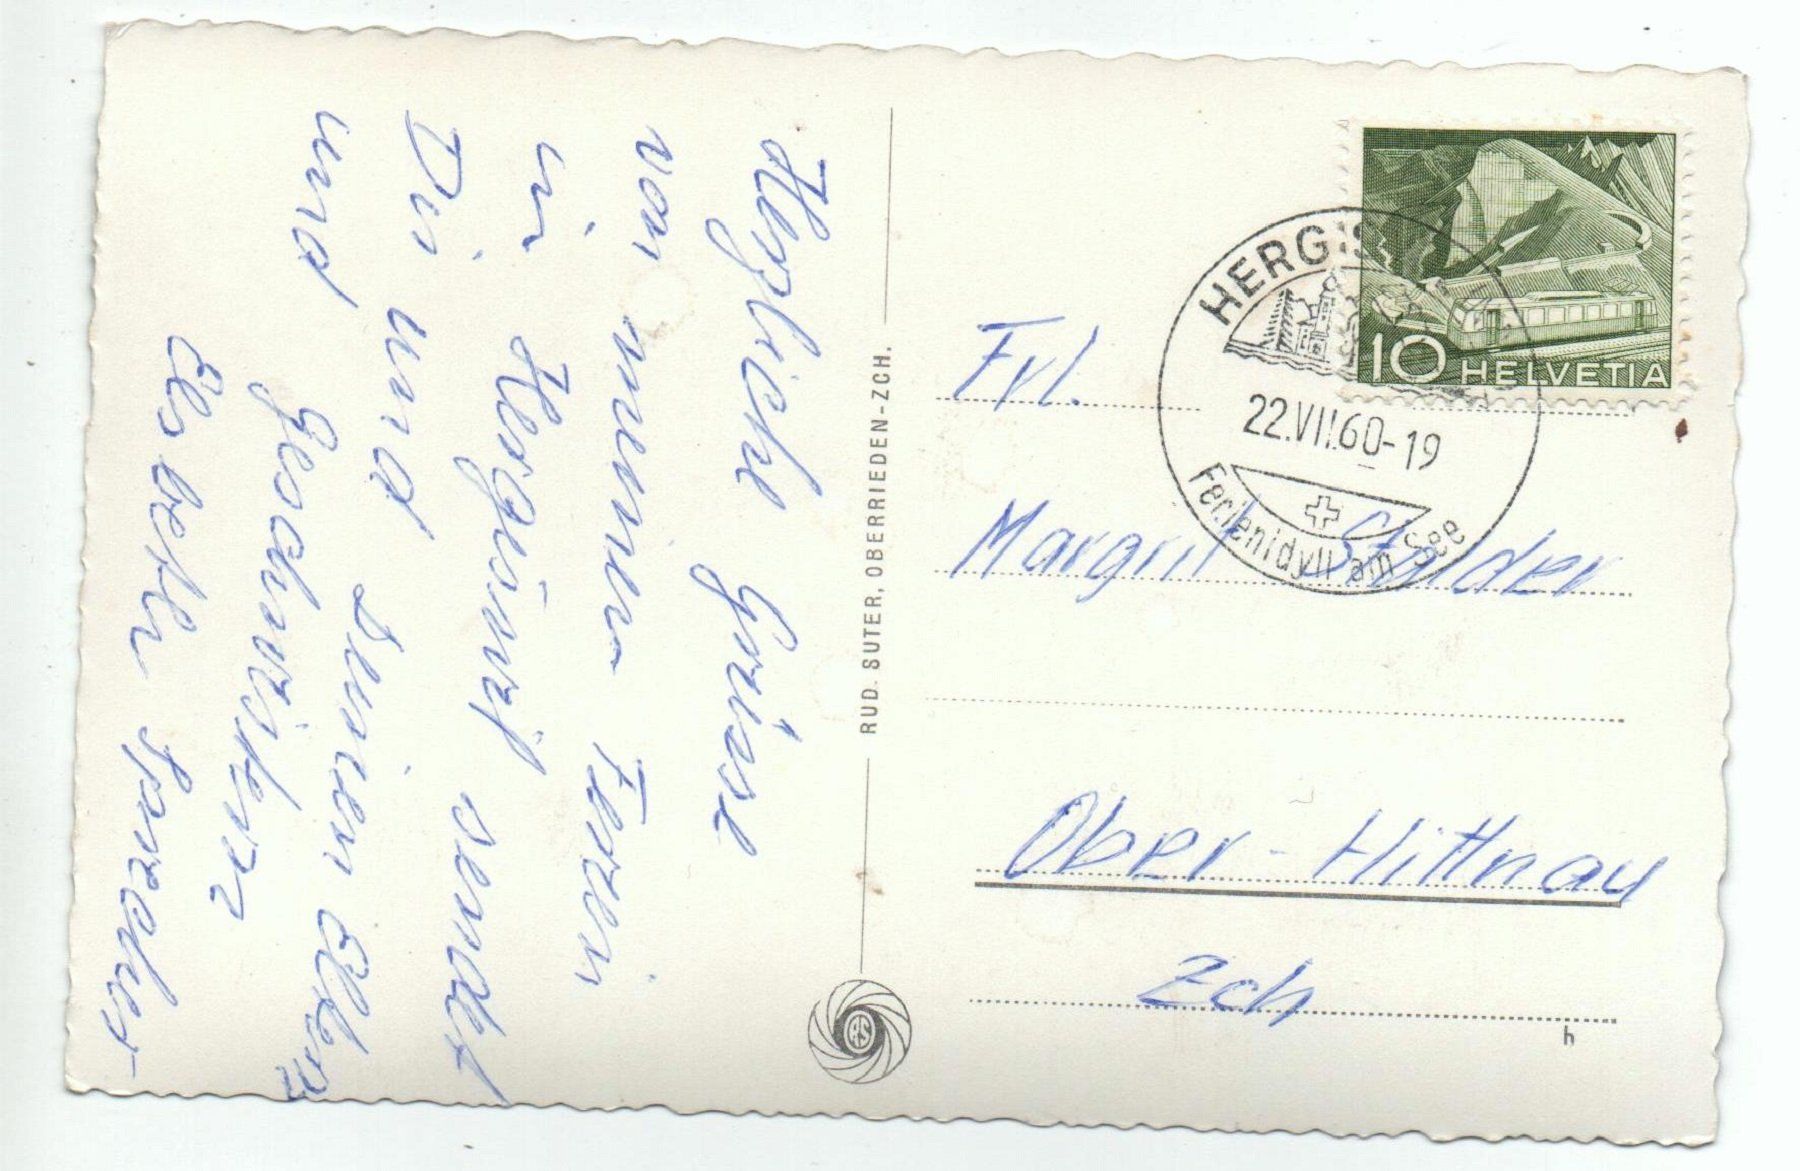 Herzliche Grüsse
von meinen Ferien
in Hergiswil sendet
Dir und deinen Eltern
und Geschwistern
Elsbeth
RUD. SUTER, OBERRIEDEN-ZCH.
10 HELVETIA
HERGIS
22.VII.60-19
Ferienidyll am See
Frl.
Margrit Studer
Ober-Hittnau
Zch
h